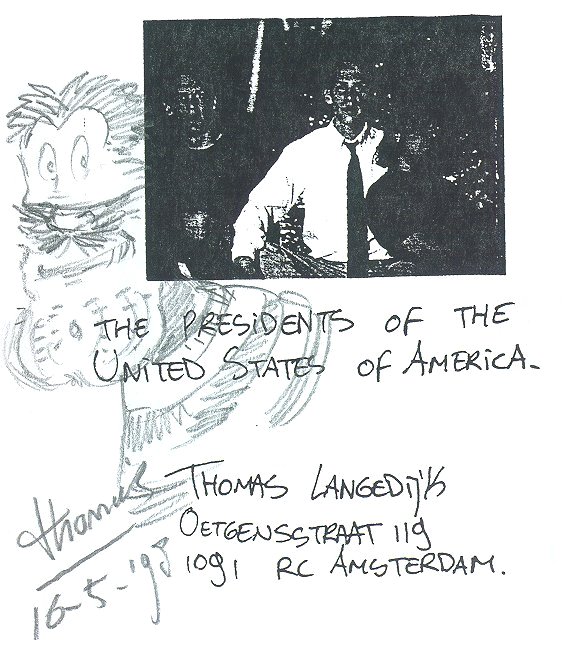 THE PRESIDENTS OF THE
UNITED STATES OF AMERICA.
THOMAS LANGEDIJK
OETGENSSTRAAT 119
1091 RC AMSTERDAM.
thomas
16-5-'98